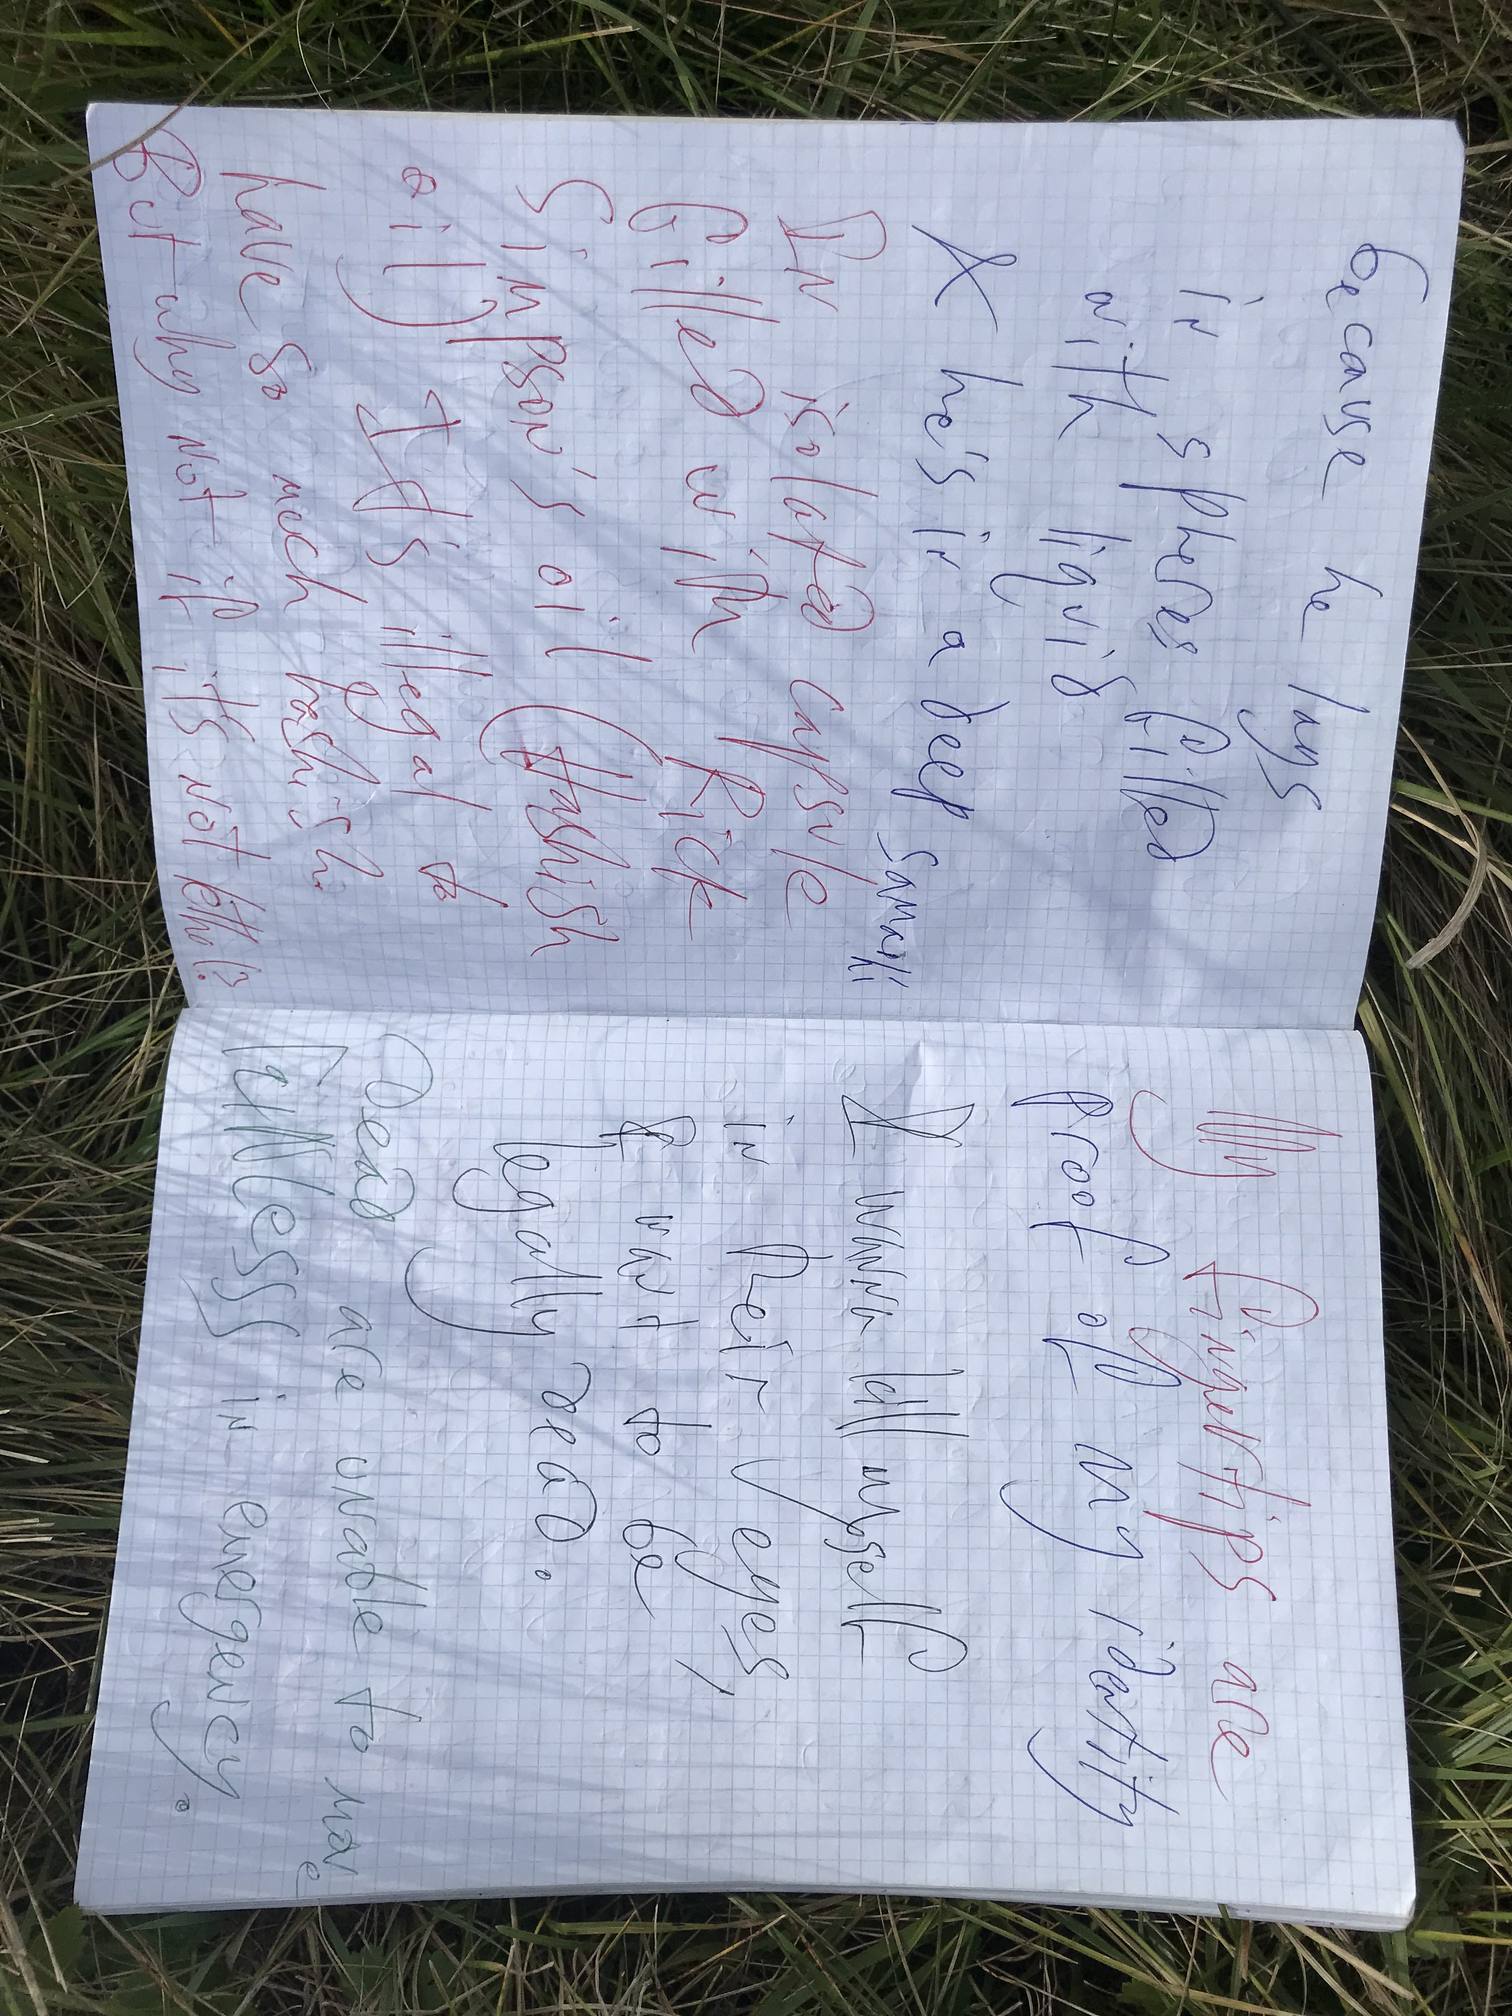 because he lays
in spheres filled
with liquid
& he's in a deep
In isolated capsule
filled with Rick
Simpson's oil (Hashish
oil) It's illegal to
have so much hashish.
But why not if it's not
My fingertips are
proof of my identity
I wanna kill myself
in their eyes,
I want to be
legally dead.
Dead are unable to move
in emergency.